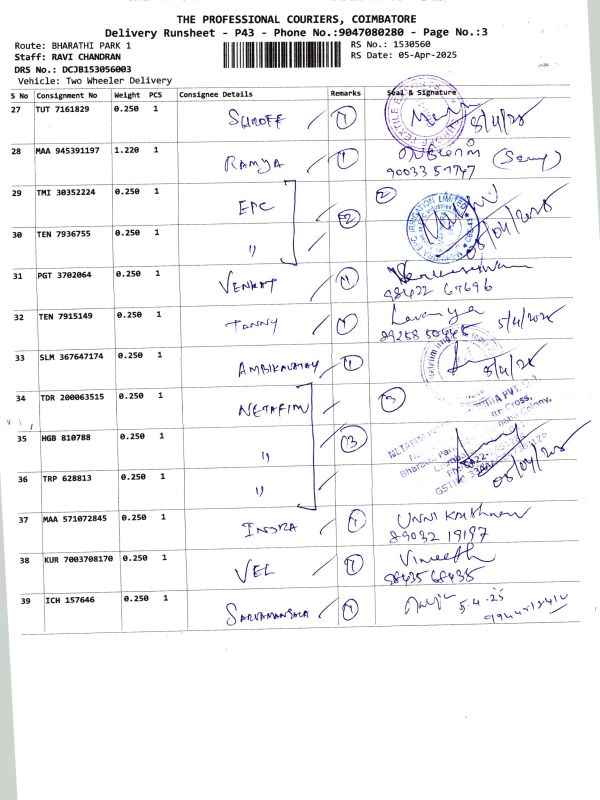 THE PROFESSIONAL COURIERS, COIMBATORE
Delivery Runsheet - P43 - Phone No.:9047080280 - Page No.:3
Route: BHARATHI PARK 1 RS No.: 1530560
Staff: RAVI CHANDRAN RS Date: 05-Apr-2025
DRS No.: DCJB153056003
Vehicle: Two Wheeler Delivery
S No Consignment No Weight PCS Consignee Details Remarks Seal & Signature
27 TUT 7161829 0.250 1 SHROFF 1 5/4/25
28 MAA 945391197 1.220 1 RAMYA 1
90033 57747
29 TMI 30352224 0.250 1 EPC 2 2
30 TEN 7936755 0.250 1 " 05/04/2025
31 PGT 3702064 0.250 1 VENKAT 1
98422 67696
32 TEN 7915149 0.250 1 TANNY 1 Lavanya 5/4/2025
33 SLM 367647174 0.250 1 AMBIKA 1 5/4/25
34 TDR 200063515 0.250 1 NETAFIM 3
35 HGB 810788 0.250 1 " 3
36 TRP 628813 0.250 1 " 05/04/25
37 MAA 571072845 0.250 1 INDRA 1 UNNI KRISHNAN
89032 19197
38 KUR 7003708170 0.250 1 VEL 1 Vineeth
98435 68435
39 ICH 157646 0.250 1 SARVAMANGALA 1 5.4.25